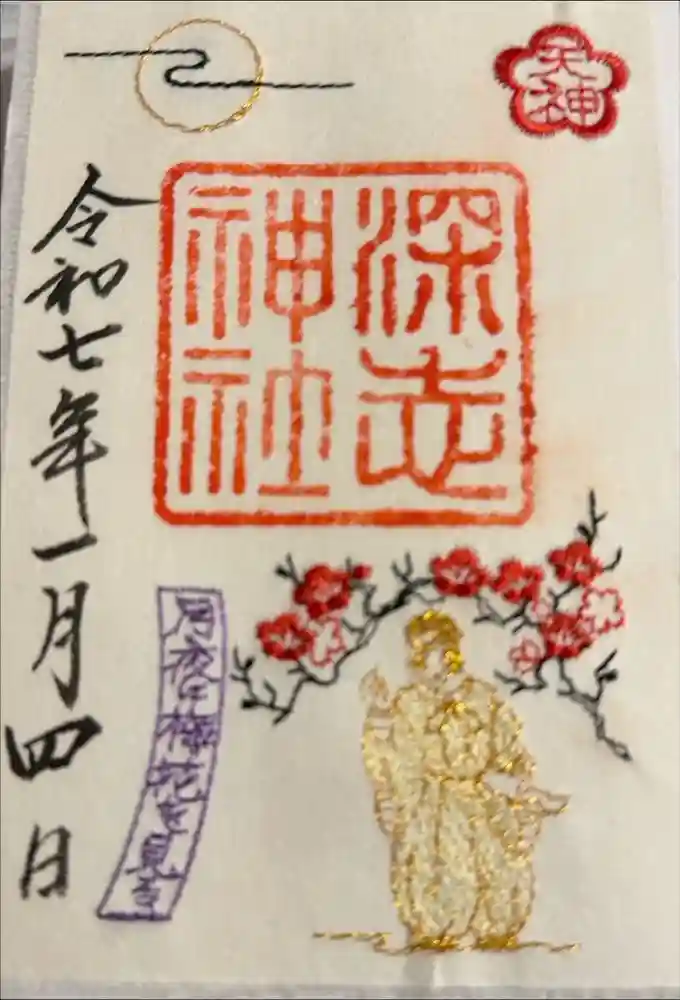 天神
深志
神社
令和七年一月四日
月夜に梅花を見る